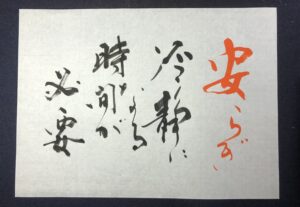 安らぎ
冷静に
なる
時間が
必要